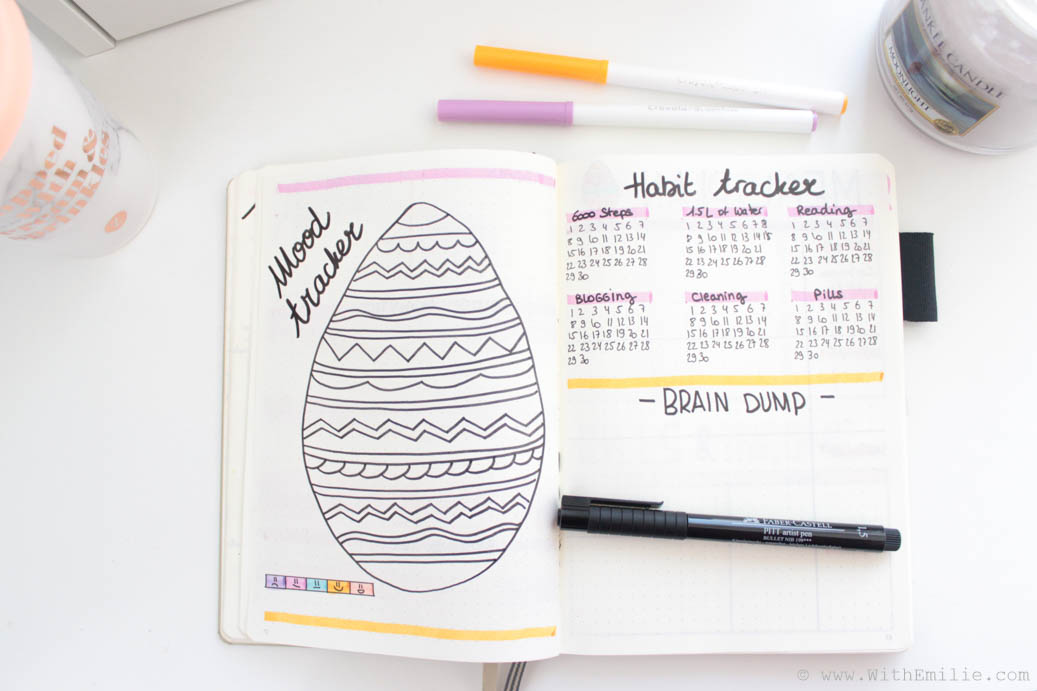 Mood
tracker
Habit tracker
6000 Steps
1 2 3 4 5 6 7
8 9 10 11 12 13 14
15 16 17 18 19 20 21
22 23 24 25 26 27 28
29 30
1.5L of Water
1 2 3 4 5 6 7 8
9 10 11 12 13 14 15
15 16 17 18 19 20 21
22 23 24 25 26 27 28
29 30
Reading
1 2 3 4 5 6 7
8 9 10 11 12 13 14
15 16 17 18 19 20 21
22 23 24 25 26 27 28
29 30
BLOGGING
1 2 3 4 5 6 7
8 9 10 11 12 13 14
15 16 17 18 19 20 21
22 23 24 25 26 27 28
29 30
Cleaning
1 2 3 4 5 6 7
8 9 10 11 12 13 14
15 16 17 18 19 20 21
22 23 24 25 26 27 28
29 30
Pills
1 2 3 4 5 6 7
8 9 10 11 12 13 14
15 16 17 18 19 20 21
22 23 24 25 26 27 28
29 30
- BRAIN DUMP -
FABER-CASTELL
PITT artist pen
BULLET NIB 199***
1.5
YANKEE CANDLE
MOONLIGHT
© www.WithEmilie.com